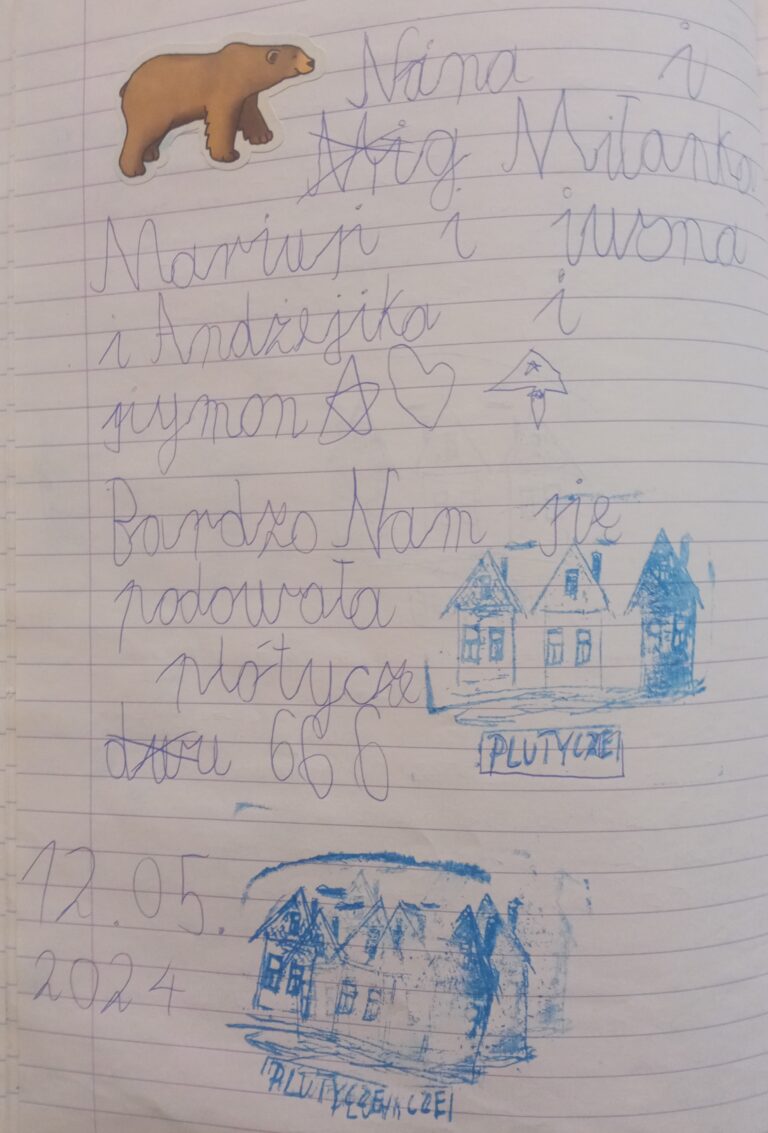 Nina i
Mig Miłanka
Mariuji i iwona
i Andżejika i
jiymon
Bardzo Nam jię
podowała
płótycze
dwu 666
PLUTYCZE
12.05.
2024
PLUTYCZE